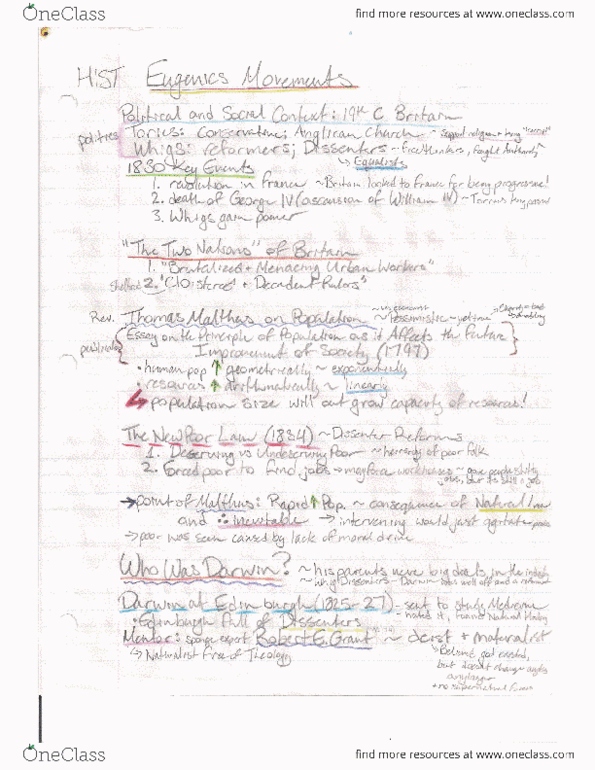 OneClass
find more resources at www.oneclass.com
HIST Eugenics Movements
Political and Social Context: 19th C. Britain
politics
Tories: Conservatives; Anglican Church ~ Support religion + king
Whigs: reformers; Dissenters ~ Freethinkers, Fought Authority
↳ Equalists
1830 Key Events
1. revolution in France ~ Britain looked to France for being progressive!
2. death of George IV (ascension of William IV) ~ Tories
3. Whigs gain power
"The Two Nations" of Britain
1. "Brutalized + Menacing Urban Workers"
2. "Cloistered + Decadent Rulers"
Rev. Thomas Malthus on Population ~ pessimistic
Essay on the Principle of Population as it Affects the Future
Improvement of Society (1797)
• human pop ↑ geometrically ~ exponentially
• resources ↑ arithmatically ~ linearly
↳ population size will out grow capacity of resources!
The New Poor Law (1834) ~ Dissenter Reforms
1. Deserving vs Undeserving Poor ~ heredity of poor folk
2. Forced poor to find jobs → may force workhouses ~ gave people shitty
jobs, but it's still a job
→ point of Malthus: Rapid ↑ Pop. ~ consequence of Natural law
and ∴ inevitable → intervening would just
→ poor was seen caused by lack of moral drive
Who Was Darwin? ~ his parents were big deals in the
~ Whig Dissenters - Darwin was well off and a
Darwin at Edinburgh (1825-27) - sent to study Medicine
hated it, Natural History
: Edinburgh Full of Dissenters
Mentor: sponge expert Robert E. Grant ~ deist + materialist
↳ Naturalist Free of Theology
↳ Believed god existed,
but doesn't change
anymore
+ no supernatural forces
OneClass
find more resources at www.oneclass.com